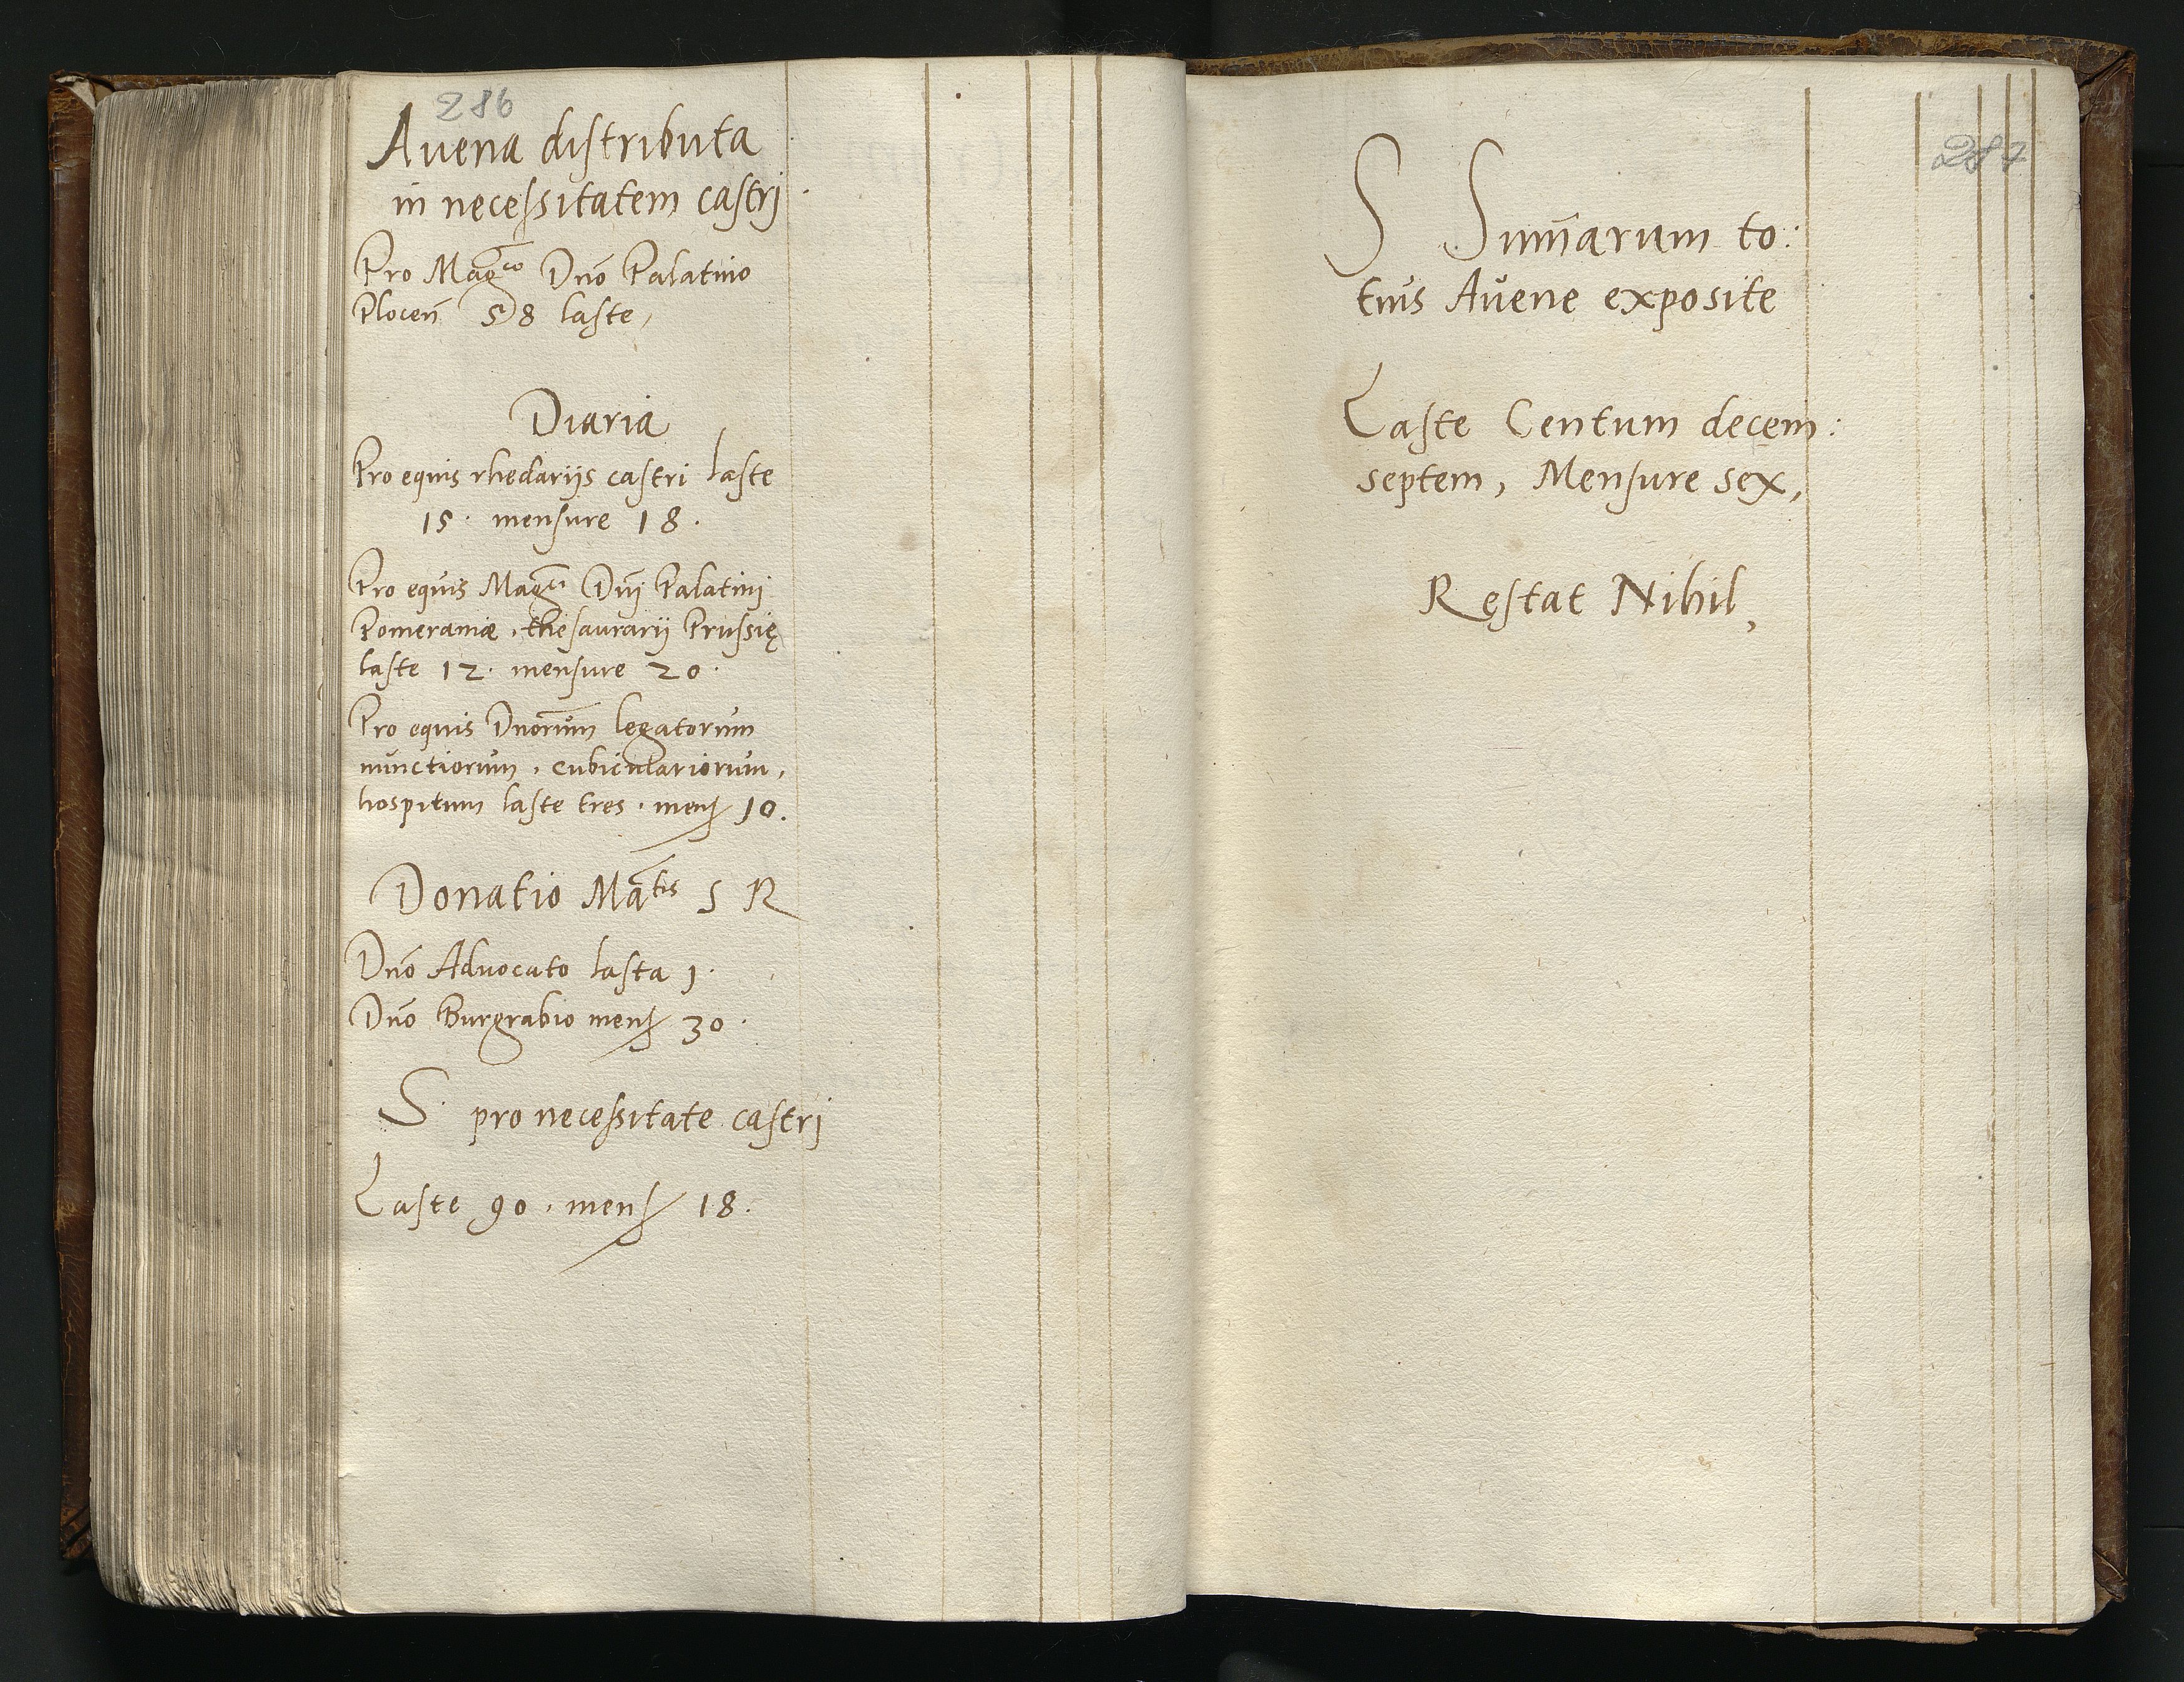 286
Auena distributa
in necessitatem castrj
Pro Mag^co Dnō Palatino
Plocen̄ 58 laste,
Diaria
Pro equis rhedarijs castri laste
15. mensure 18.
Pro equis Mag^ci Dn̄j Palatinj
Pomeraniæ, thesaurarij Prussię
laste 12. mensure 20.
Pro equis Dnōrum legatorum
nunctiorum, cubiculariorum,
hospitum laste tres. mens 10.
Donatio Ma^tis S R
Dnō Aduocato lasta 1.
Dnō Burgrabio mens 30.
S. pro necessitate castrj
Laste 90. mens 18.
287
S Sum̄arum to:
tius Auene exposite
Laste Centum decem:
septem, Mensure sex,
Restat Nihil,